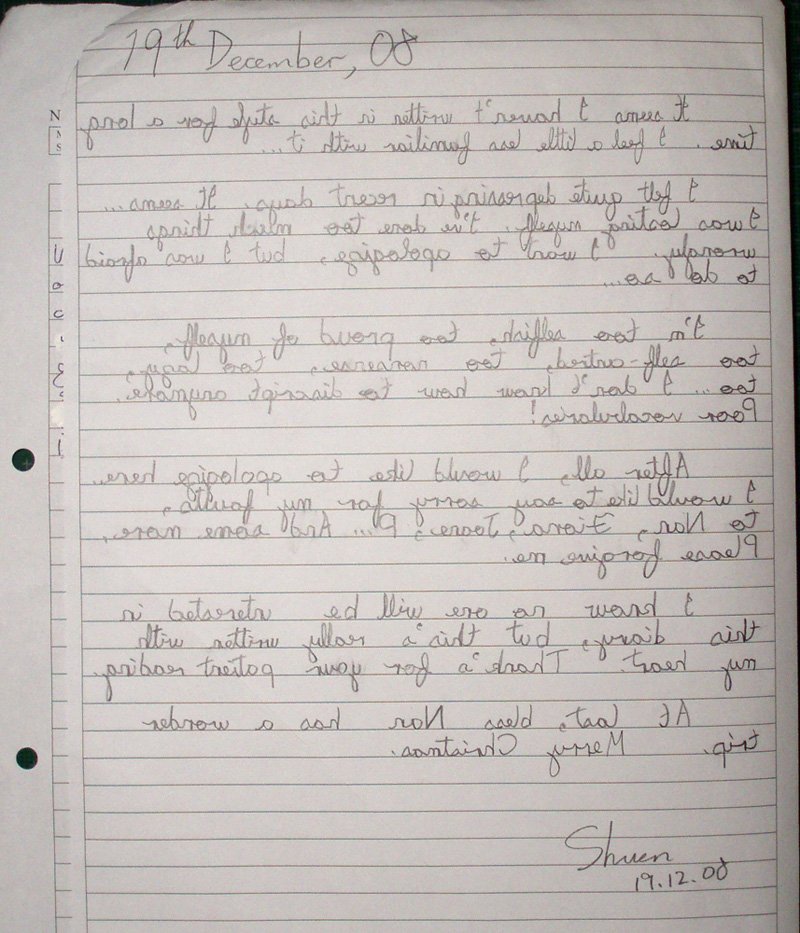 19th December, 08
It seems I haven't written in this style for a long
time. I feel a little less familiar with it...
I felt quite depressing in recent days. It seems...
I was losting myself. I've done too much things
wrongly. I want to apologize, but I was afraid
to do so...
I'm too selfish, too proud of myself,
too self-centred, too too lazy,
too... I don't know how to discript anymore.
Poor vocabularies!
After all, I would like to apologize here.
I would like to say sorry for my faults,
to Nor, P... And some more.
Please forgive me.
I know no one will be interested in
this diary, but this's really written with
my heart. Thank's for your patient reading.
At last, bless Nor has a wonder
trip. Merry Christmas.
Shuen
19.12.08